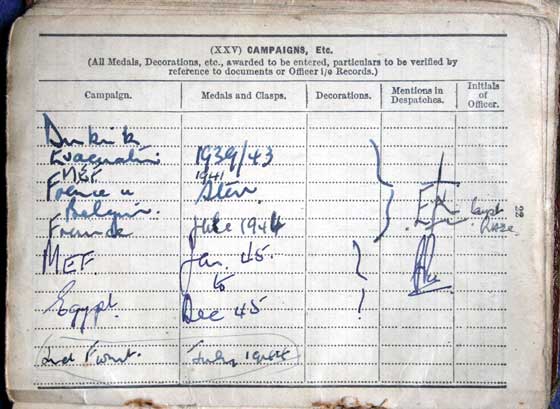 (XXV) CAMPAIGNS, Etc.
(All Medals, Decorations, etc., awarded to be entered, particulars to be verified by
reference to documents or Officer i/c Records.)
Campaign. Medals and Clasps. Decorations. Mentions in Despatches. Initials of Officer.
Dunkirk
Evacuation 1939/43
MEF 1941
France & Star
Belgium.
France 1944
MEF. Jan. 45.
to
Egypt. Dec 45
2nd Front. 1944
22